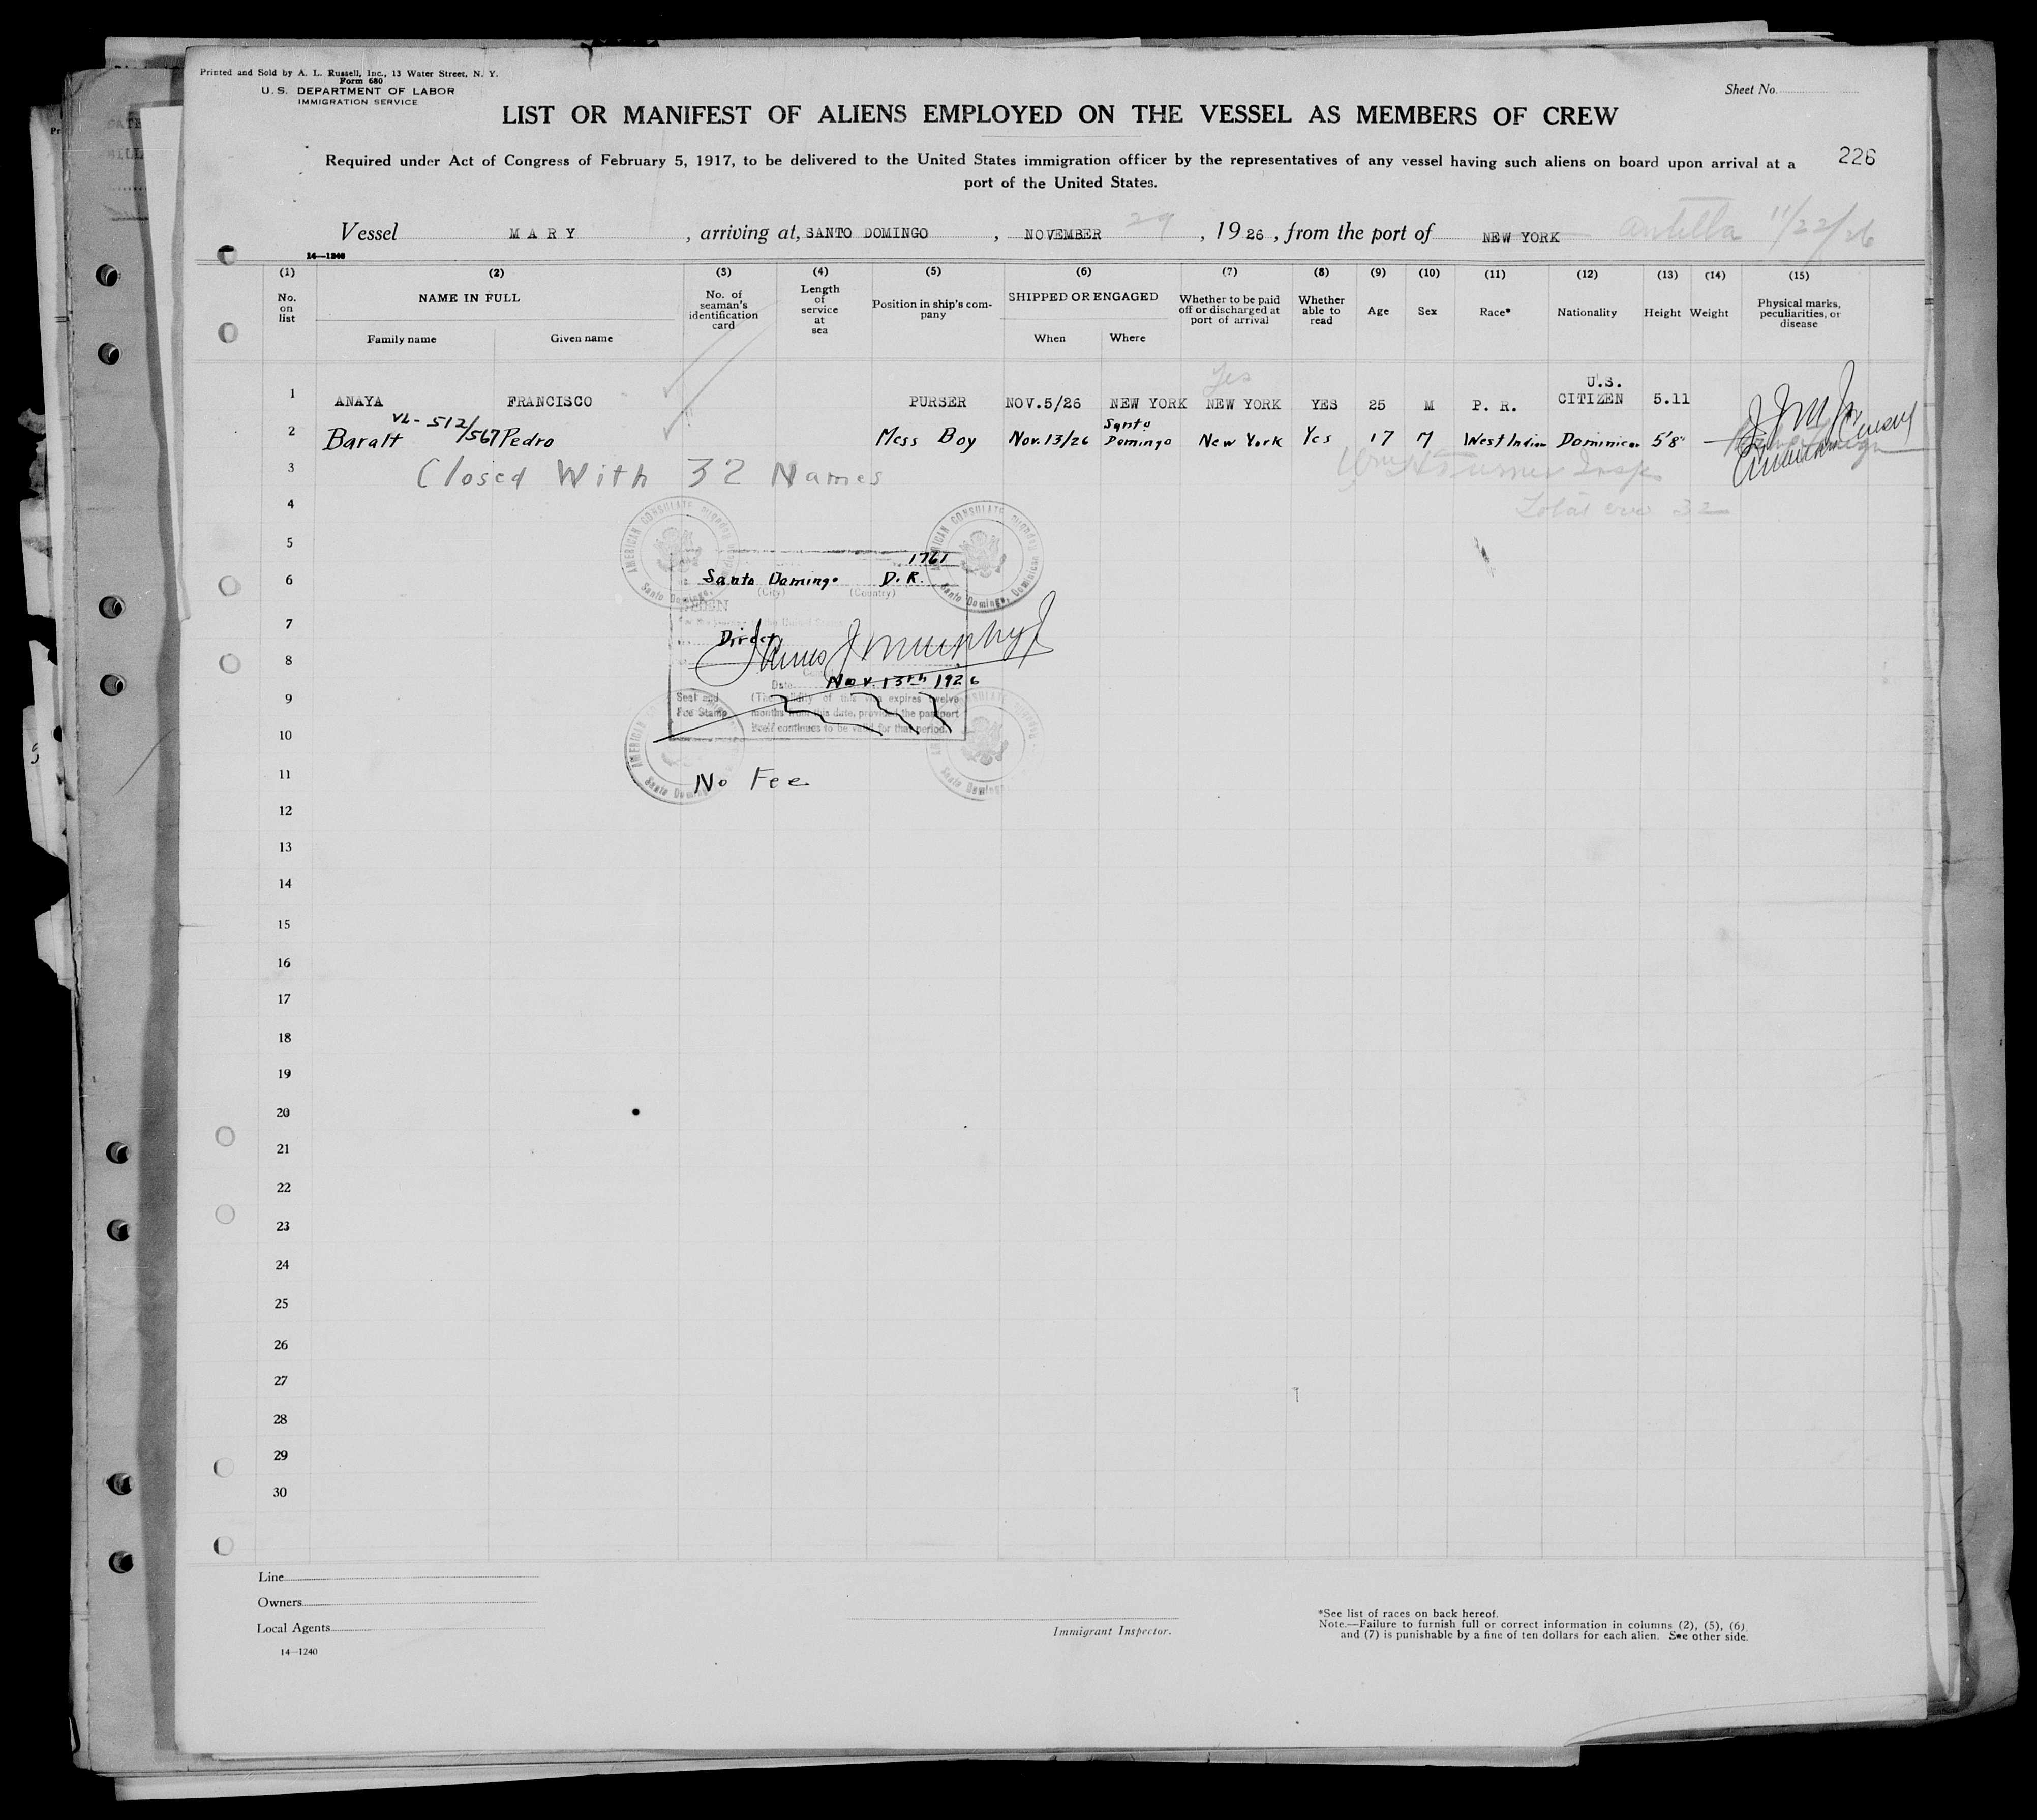 Printed and Sold by A. L. Russell, Inc., 13 Water Street, N. Y.
Form 680
U. S. DEPARTMENT OF LABOR
IMMIGRATION SERVICE
Sheet No.
LIST OR MANIFEST OF ALIENS EMPLOYED ON THE VESSEL AS MEMBERS OF CREW
Required under Act of Congress of February 5, 1917, to be delivered to the United States immigration officer by the representatives of any vessel having such aliens on board upon arrival at a
port of the United States.
226
Vessel MARY , arriving at, SANTO DOMINGO , NOVEMBER 29 , 1926 , from the port of NEW YORK Antilla 11/22/26
14—1240
(1) (2) (3) (4) (5) (6) (7) (8) (9) (10) (11) (12) (13) (14) (15)
No. on list
NAME IN FULL
Family name Given name
No. of seaman's identification card
Length of service at sea
Position in ship's company
SHIPPED OR ENGAGED
When Where
Whether to be paid off or discharged at port of arrival
Whether able to read
Age
Sex
Race*
Nationality
Height
Weight
Physical marks, peculiarities, or disease
Yes
1 ANAYA FRANCISCO PURSER NOV.5/26 NEW YORK NEW YORK YES 25 M P. R. U.S. CITIZEN 5.11
VL-512/567
2 Baralt Pedro Mess Boy Nov.13/26 Santo Domingo New York Yes 17 M West Indian Dominican 5'8"
3 Closed With 32 Names
Insp
4 Total crew 32
5
1761
6 Santo Domingo D.R.
(City) (Country)
7
Direct
James J Murphy Jr
8
Date Nov. 13th 1926
9 Seal and (The validity of this visa expires twelve
Fee Stamp months from this date, provided the passport
10 itself continues to be valid for that period.)
AMERICAN CONSULATE
Santo Domingo, Dominican Republic
11 No Fee
12
13
14
15
16
17
18
19
20
21
22
23
24
25
26
27
28
29
30
Line
Owners
Local Agents
14—1240
Immigrant Inspector.
*See list of races on back hereof.
Note.—Failure to furnish full or correct information in columns (2), (5), (6)
and (7) is punishable by a fine of ten dollars for each alien. See other side.